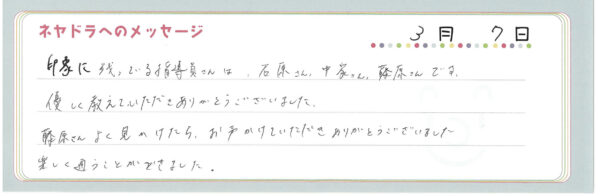 ネヤドラへのメッセージ
3月 7日
印象に残っている指導員さんは、石原さん、中家さん、藤原さんです。
優しく教えていただきありがとうございました。
藤原さんよく見かけたら、お声かけていただきありがとうございました
楽しく通うことができました。